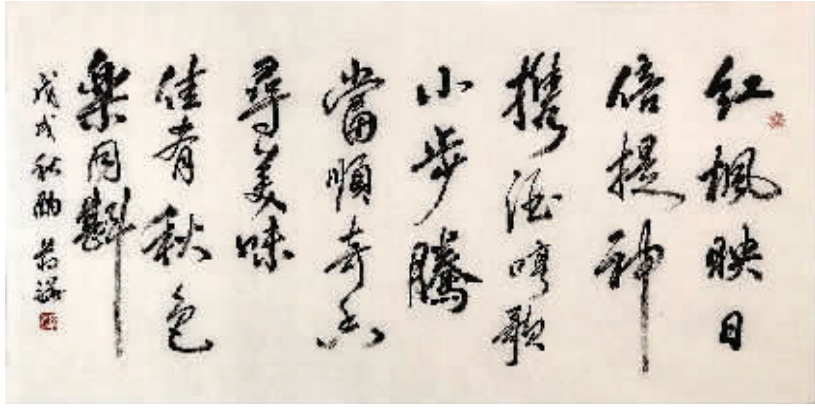 红楓映日
倍提神
携酒哼歌
小步騰
當順奇香
尋美味
佳肴秋色
樂同斟
戊戌秋